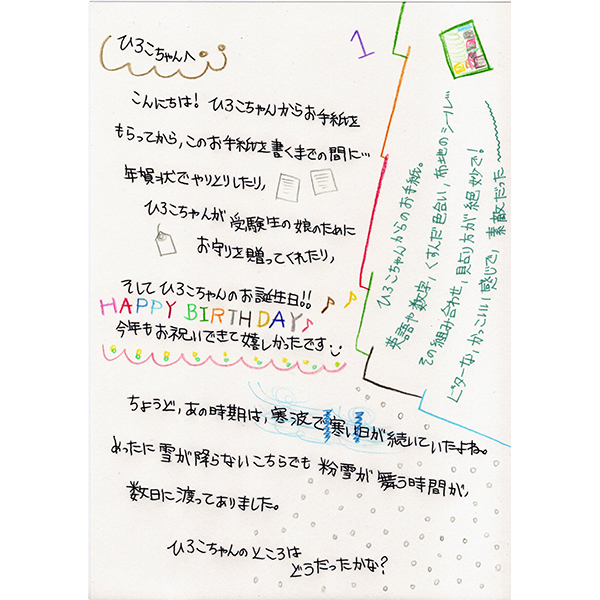 ひろこちゃんへ
1
こんにちは! ひろこちゃんからお手紙を
もらってから、このお手紙を書くまでの間に…
年賀状でやりとりしたり、
ひろこちゃんが受験生の娘のために
お守りを贈ってくれたり、
そしてひろこちゃんのお誕生日!!
HAPPY BIRTHDAY
今年もお祝いできて嬉しかったです
ひろこちゃんからのお手紙。
英語や数字、くすんだ色合い、布地のシールど
その組み合わせ、貼り方が絶妙で!
ビターな、かっこいい感じで、素敵だった
ちょうど、あの時期は、寒波で寒い日が続いていたよね。
めったに雪が降らないこちらでも粉雪が舞う時間が、
数日に渡ってありました。
ひろこちゃんのところは
どうだったかな?